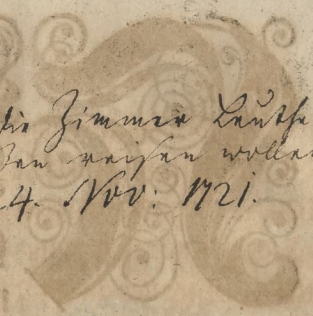 die Zimmer Leuthe
reisen wollen
4. Nov: 1721.